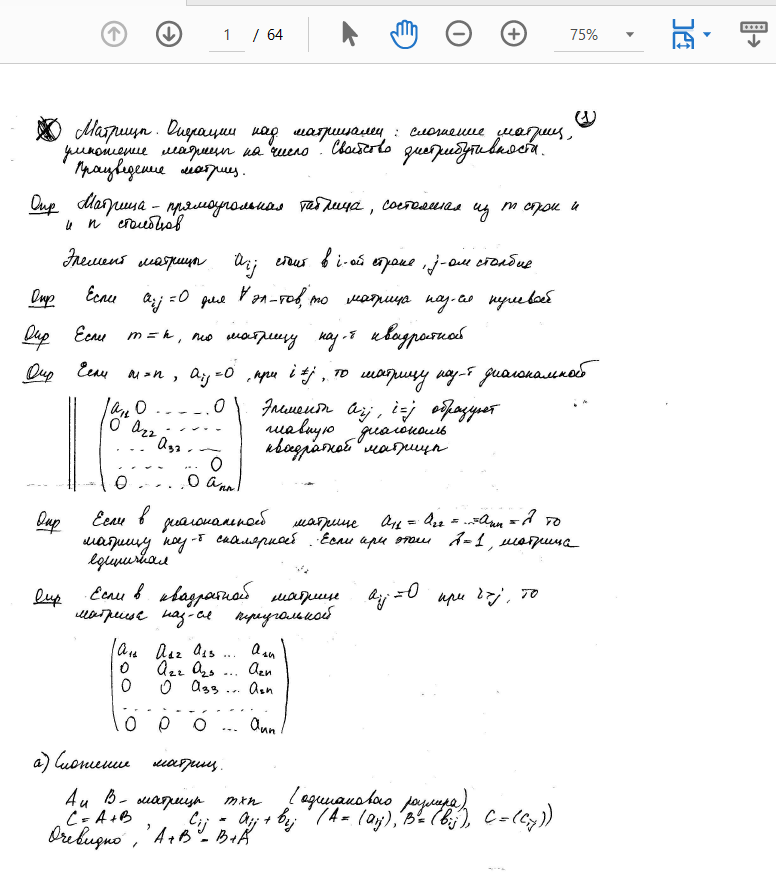 1 / 64 75%
1
Матрицы. Операции над матрицами: сложение матриц,
умножение матрицы на число. Свойство дистрибутивности.
Произведение матриц.
Опр Матрица – прямоугольная таблица, состоящая из m строк и
и n столбцов
Элемент матрицы aij стоит в i-ой строке, j-ом столбце
Опр Если aij = 0 для ∀ эл-тов, то матрица наз-ся нулевой
Опр Если m = n, то матрицу наз-т квадратной
Опр Если m = n, aij = 0, при i ≠ j, то матрицу наз-т диагональной
a11 0 ..... 0 Элементы aij, i=j образуют
0 a22 ..... главную диагональ
... a33 ... квадратной матрицы
..... ... 0
0 ..... 0 ann
Опр Если в диагональной матрице a11 = a22 = ... = ann = λ то
матрицу наз-т скалярной. Если при этом λ=1, матрица
единичная
Опр Если в квадратной матрице aij = 0 при i>j, то
матрица наз-ся треугольной
a11 a12 a13 ... a1n
0 a22 a23 ... a2n
0 0 a33 ... a3n
..........
0 0 0 ... ann
а) Сложение матриц.
A и B – матрицы m×n (одинакового размера)
C = A+B, cij = aij + bij (A = (aij), B = (bij), C = (cij))
Очевидно, A+B = B+A